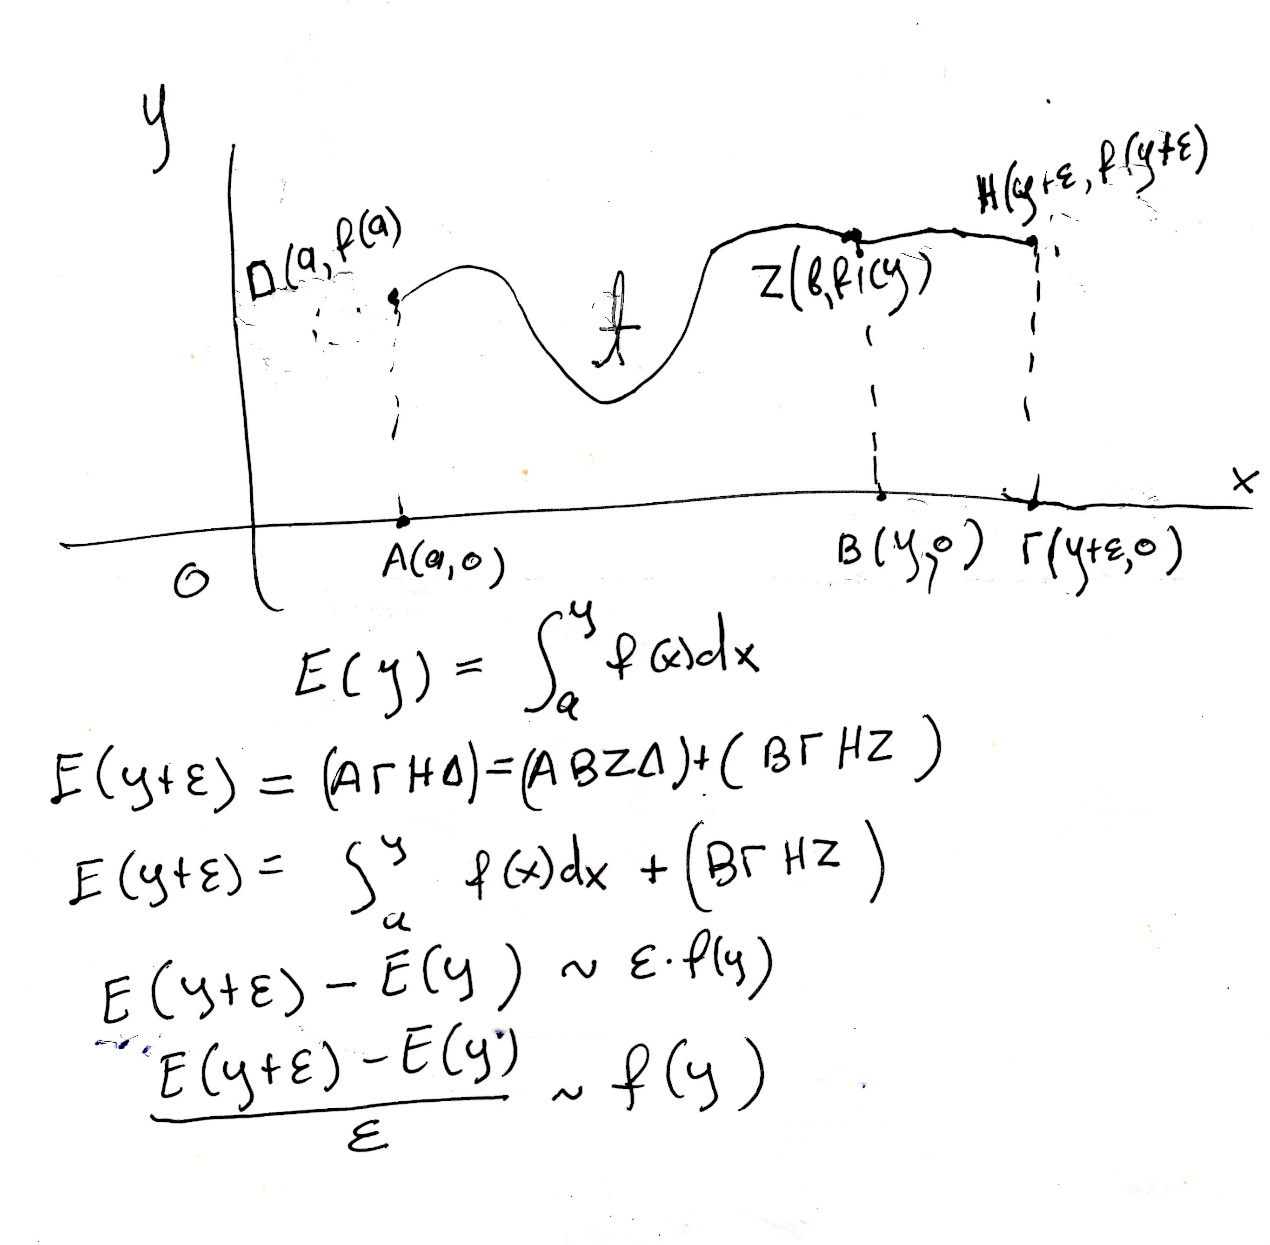 y
H(y+ε, f(y+ε)
D(a, f(a)
f
x
O
A(a,0)
B(y,0)
Γ(y+ε,0)
E(y) = ∫ₐʸ f(x)dx
E(y+ε) = (ΑΓΗΔ)=(ΑΒΖΔ)+( ΒΓΗΖ )
E(y+ε) = ∫ₐʸ f(x)dx + (ΒΓΗΖ )
E(y+ε) – E(y) ~ ε·f(y)
E(y+ε) – E(y)
ε
~ f(y)